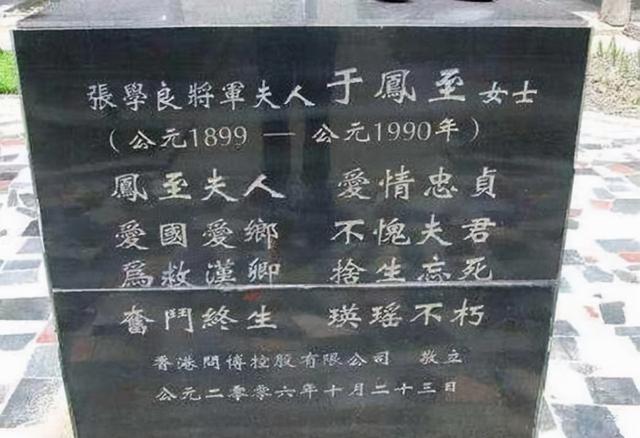 張學良將軍夫人于鳳至女士
（公元1899 — 公元1990年）
鳳至夫人 愛情忠貞
愛國愛鄉 不愧夫君
爲救漢卿 捨生忘死
奮鬥終生 瑛瑤不朽
香港問博控股有限公司 敬立
公元二零零六年十月二十三日